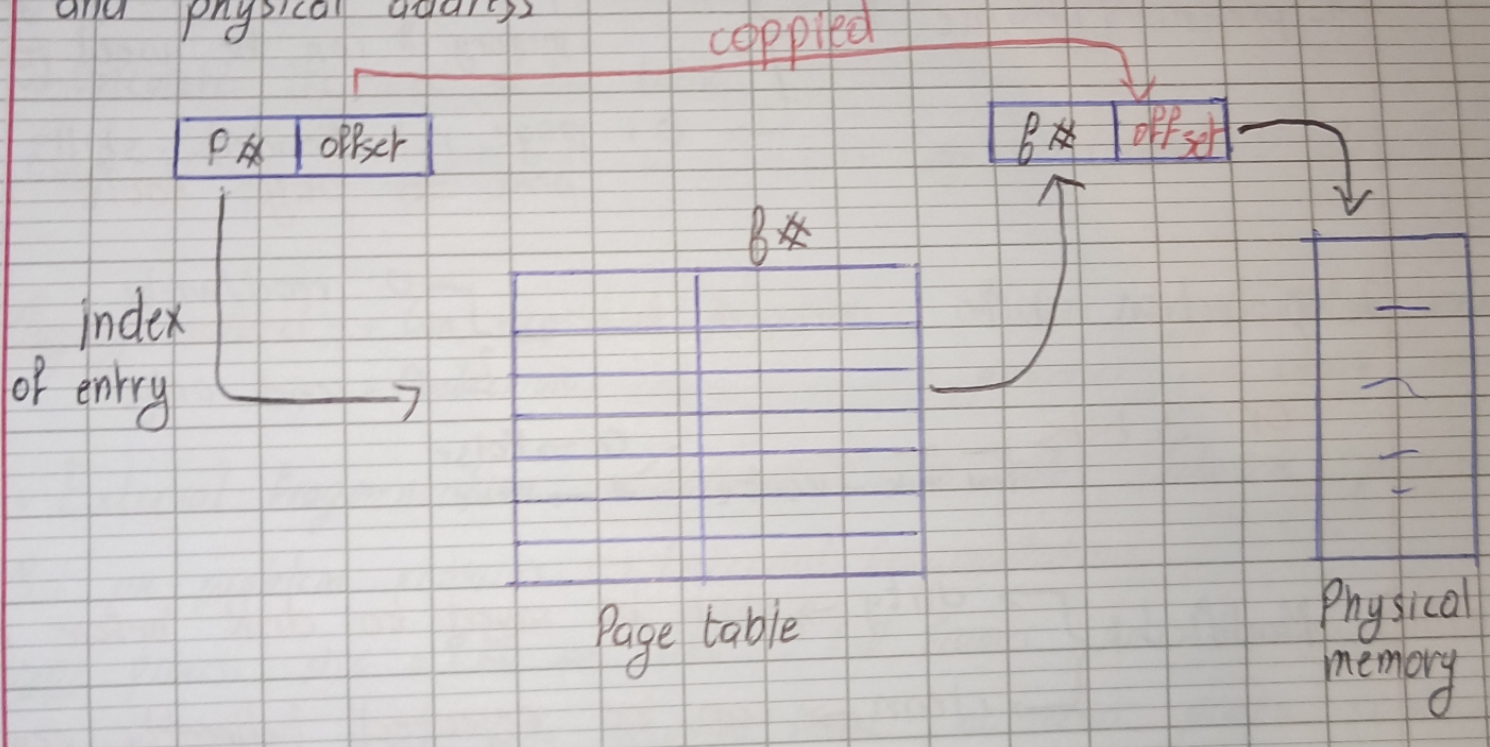 and physical address
coppied
P# offset
f# offset
f#
index
of entry
Page table
Physical
memory